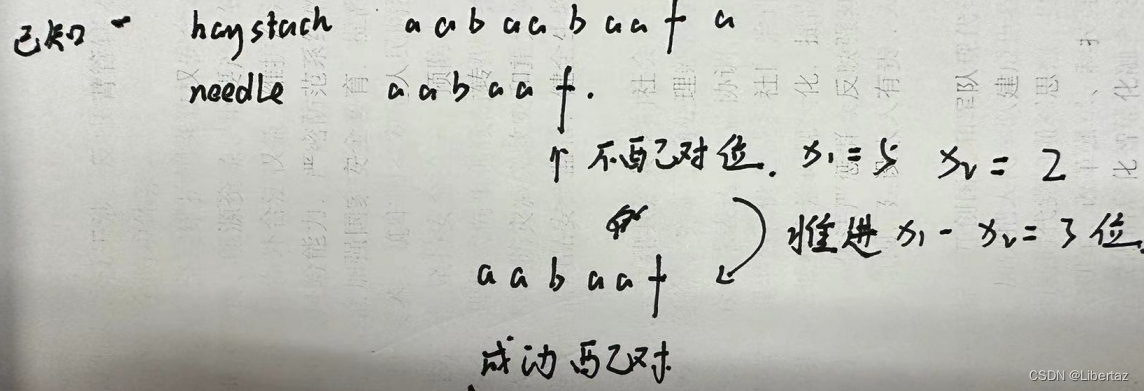 已知 haystach a a b a a b a a f a
needle a a b a a f.
↑ 不配对位. x₁ = 5 x₂ = 2
推进 x₁ - x₂ = 3 位.
a a b a a f
成功配对
CSDN @Libertaz